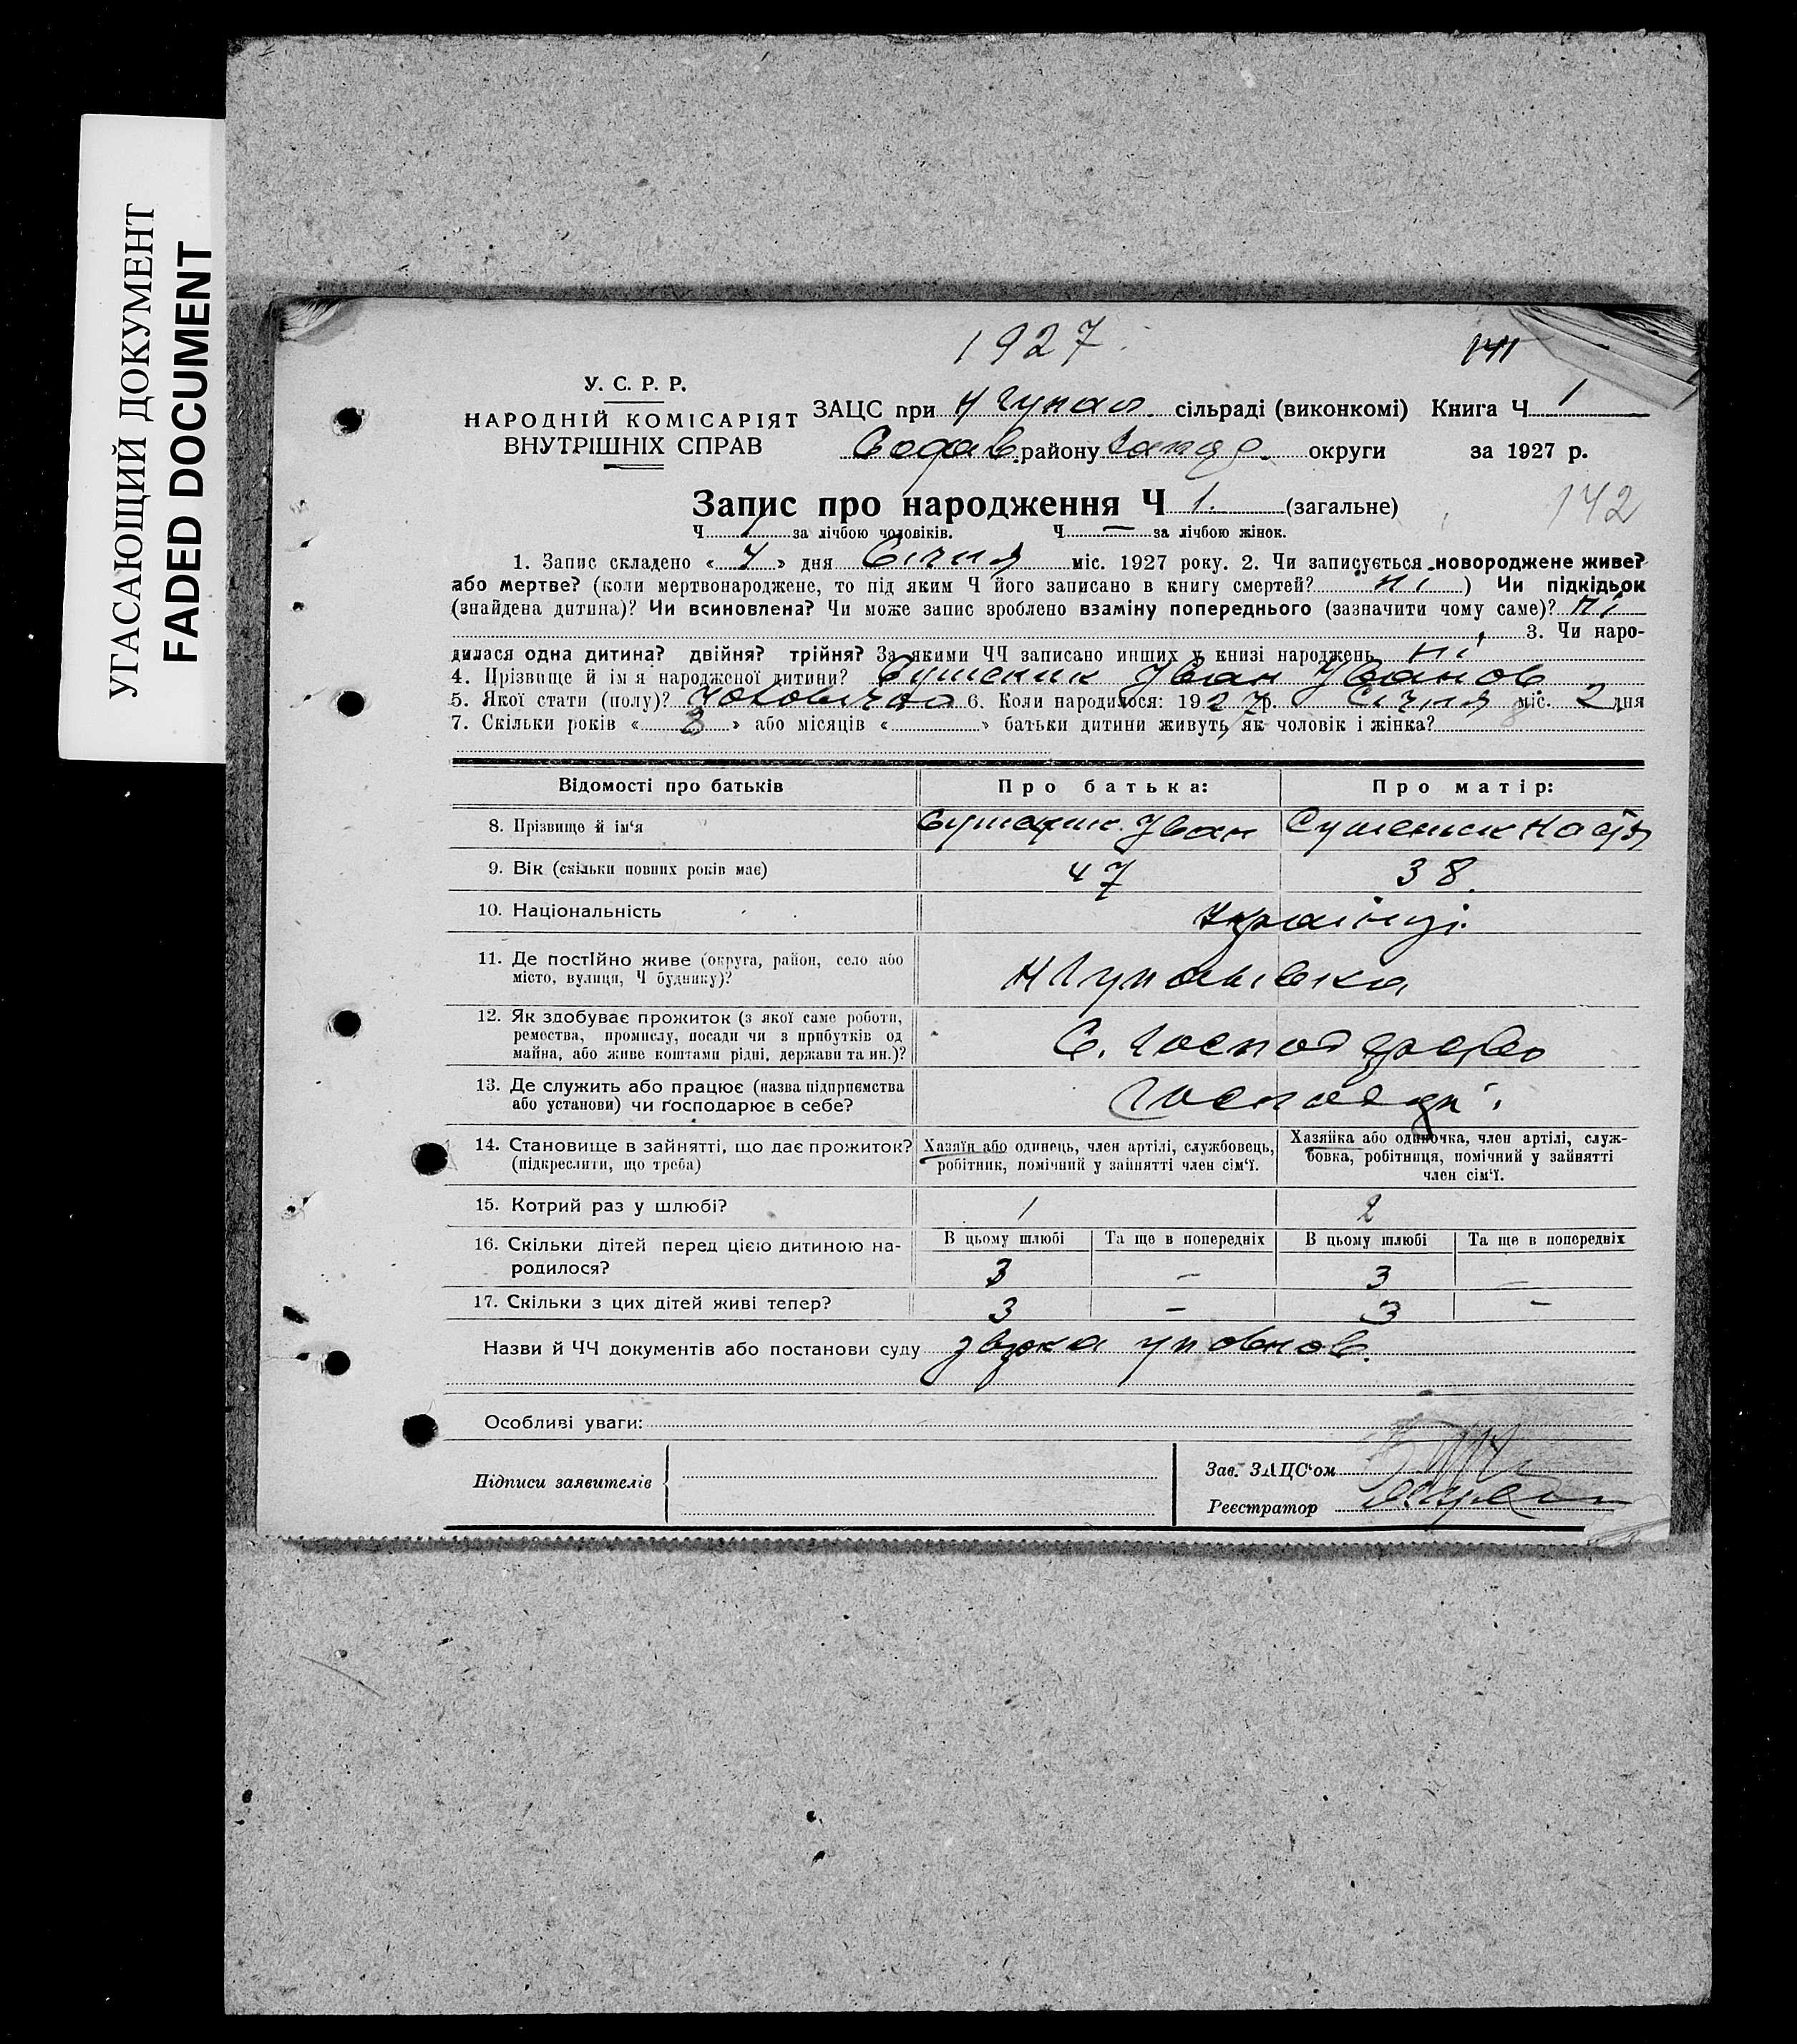 УГАСАЮЩИЙ ДОКУМЕНТ
FADED DOCUMENT
1927
141
У. С. Р. Р.
НАРОДНІЙ КОМІСАРІЯТ
ВНУТРІШНІХ СПРАВ
ЗАЦС при сільраді (виконкомі) Книга Ч 1
району округи за 1927 р.
142
Запис про народження Ч 1. (загальне)
Ч 1 за лічбою чоловіків. Ч — за лічбою жінок.
1. Запис складено « 7 » дня Січня міс. 1927 року. 2. Чи записується новороджене живе?
або мертве? (коли мертвонароджене, то під яким Ч його записано в книгу смертей? ні ) Чи підкідьок
(знайдена дитина)? Чи всиновлена? Чи може запис зроблено взаміну попереднього (зазначити чому саме)? ні
3. Чи наро-
дилася одна дитина? двійня? трійня? За якими ЧЧ записано инших у книзі народжень ні
4. Прізвище й ім'я народженої дитини? Сушеник Іван Іванов
5. Якої стати (полу)? 6. Коли народилося: 1927 р. Січня міс. 2 дня
7. Скільки років « 8 » або місяців « » батьки дитини живуть, як чоловік і жінка?
Відомості про батьків Про батька: Про матір:
8. Прізвище й ім'я Сушеник Іван Сушеник
9. Вік (скільки повних років має) 47 38.
10. Національність Українці.
11. Де постійно живе (округа, район, село або
місто, вулиця, Ч будинку)?
12. Як здобуває прожиток (з якої саме роботи,
ремества, промислу, посади чи з прибутків од
майна, або живе коштами рідні, держави та ин.)?
С. господарство
13. Де служить або працює (назва підприємства
або установи) чи господарює в себе?
14. Становище в зайнятті, що дає прожиток?
(підкреслити, що треба)
Хазяїн або одинець, член артілі, службовець,
робітник, помічний у зайнятті член сім'ї.
Хазяйка або одиночка, член артілі, служ-
бовка, робітниця, помічний у зайнятті
член сім'ї.
15. Котрий раз у шлюбі? 1 2
16. Скільки дітей перед цією дитиною на-
родилося?
В цьому шлюбі Та ще в попередніх В цьому шлюбі Та ще в попередніх
3 — 3 —
17. Скільки з цих дітей живі тепер? 3 — 3 —
Назви й ЧЧ документів або постанови суду
Особливі уваги:
Підписи заявителів
Зав. ЗАЦС'ом
Реєстратор